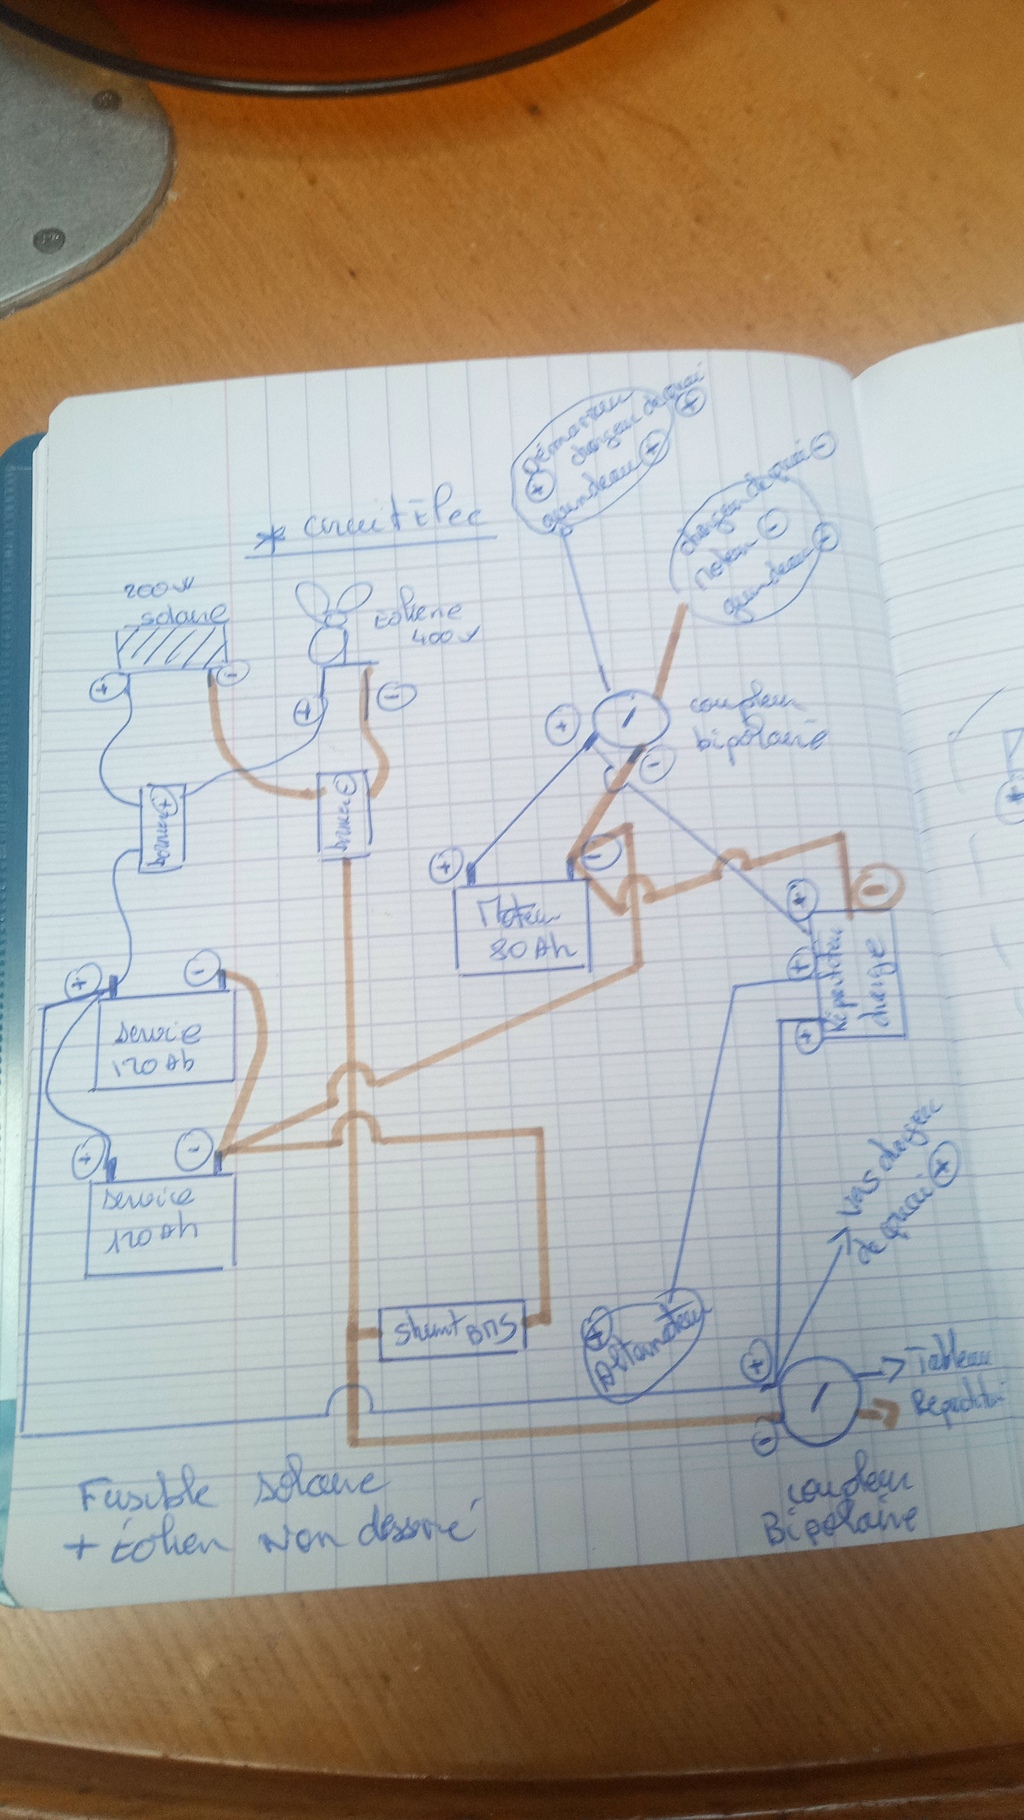 * Circuit Élec
Démarreur
+ chargeur de quai +
guindeau +
chargeur de quai -
Moteur -
guindeau -
200 W
solaire
+ -
éoliene
400 W
+ -
coupleur
bipolaire
+ -
bornier +
bornier -
+ -
Moteur
80 Ah
+ -
+
+
Répartiteur
charge
+ -
Service
120 Ah
+ -
Service
120 Ah
Vers chargeur
de quai +
Shunt BMS
+
Alternateur
+
-
Tableau
coupleur
Bipolaire
Fusible Solaire
+ Éolien Non dessiné